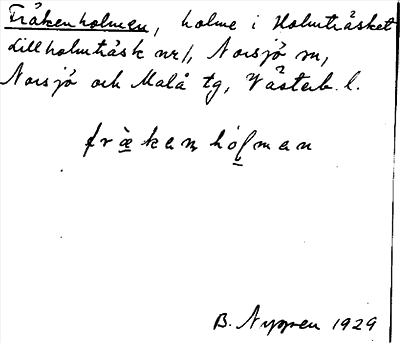 Fräkenholmen, holme i Holmträsket
till holmträsk nr 1, Norsjö sn,
Norsjö och Malå tg, Västerb. l.
fræ̀kenhólman
B. Nyppen 1929